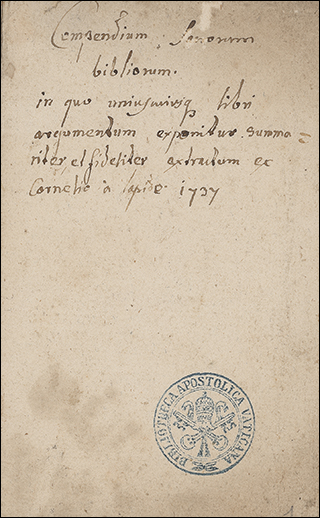 Compendium Sacrorum
bibliorum.
in quo uniuscuiusq libri
argumentum exponitur summa=
riter, et fideliter extractum ex
Cornelio à lapide. 1737
BIBLIOTHECA APOSTOLICA VATICANA